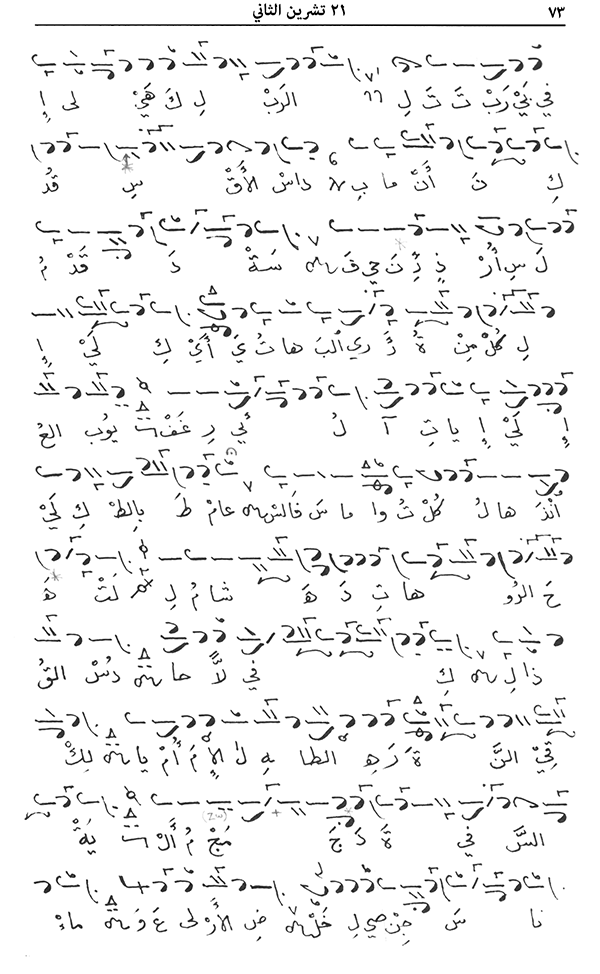 ٧٣ ٢١ تشرين الثاني
في بَيْ رَبْ تَ تَ لِ الرَبْ لِ كَ هَيْ لى إِ
كِ تَ أَنَّ ما بِ داسْ الأَقْ سِ قُدْ
لَ سِ أُرْ حي قَ سَةْ دَ قَدْ مُ
لِ كُلْ مِنْ ةُ ري البَ ها تُ يَ أَيْ كِ لَيْ إِ
إِ لَيْ إِ ياتِ آ لُ ني رِ عَفْ تَ يُوب الغُ
أُنْذُ هال كُلْ تُ وا ما سَ فَالسْ عامْ طَ بِالطْ كِ لَيْ
حَ الرُو ها تِ دَ هَ شامُ لِ لَتْ هَ
ذا لِ كِ في لاَّ حا دُسْ القُ
قِيْ النَّ ةَ رَ هِ الطا هِ لٰ الإِ مَ أُمْ يا لِكْ
السَّ في ةَ دَ جَ مَجْ مُ أَلْ تَ يَةْ
نا سَ جِنْ صي لِ خَلْ ضِ الأَرْ لى عَ وَ ماءْ